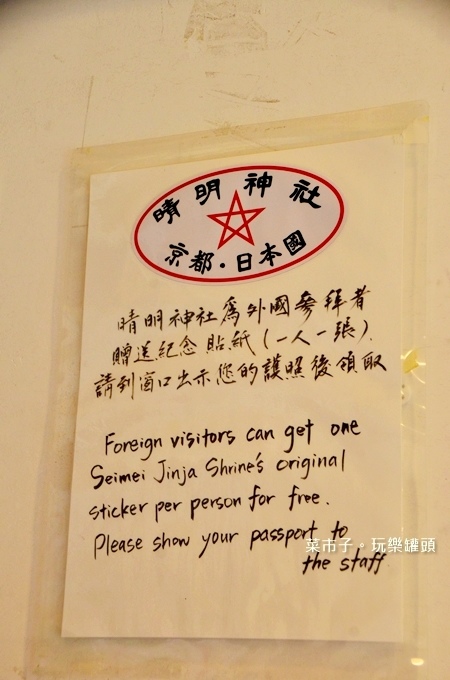 晴明神社
京都・日本國
晴明神社爲外國參拜者
贈送紀念貼紙(一人一張).
請到窗口出示您的護照後領取
Foreign visitors can get one
Seimei Jinja Shrine's original
sticker per person for free.
Please show your passport to
the staff
菜市子。玩樂罐頭